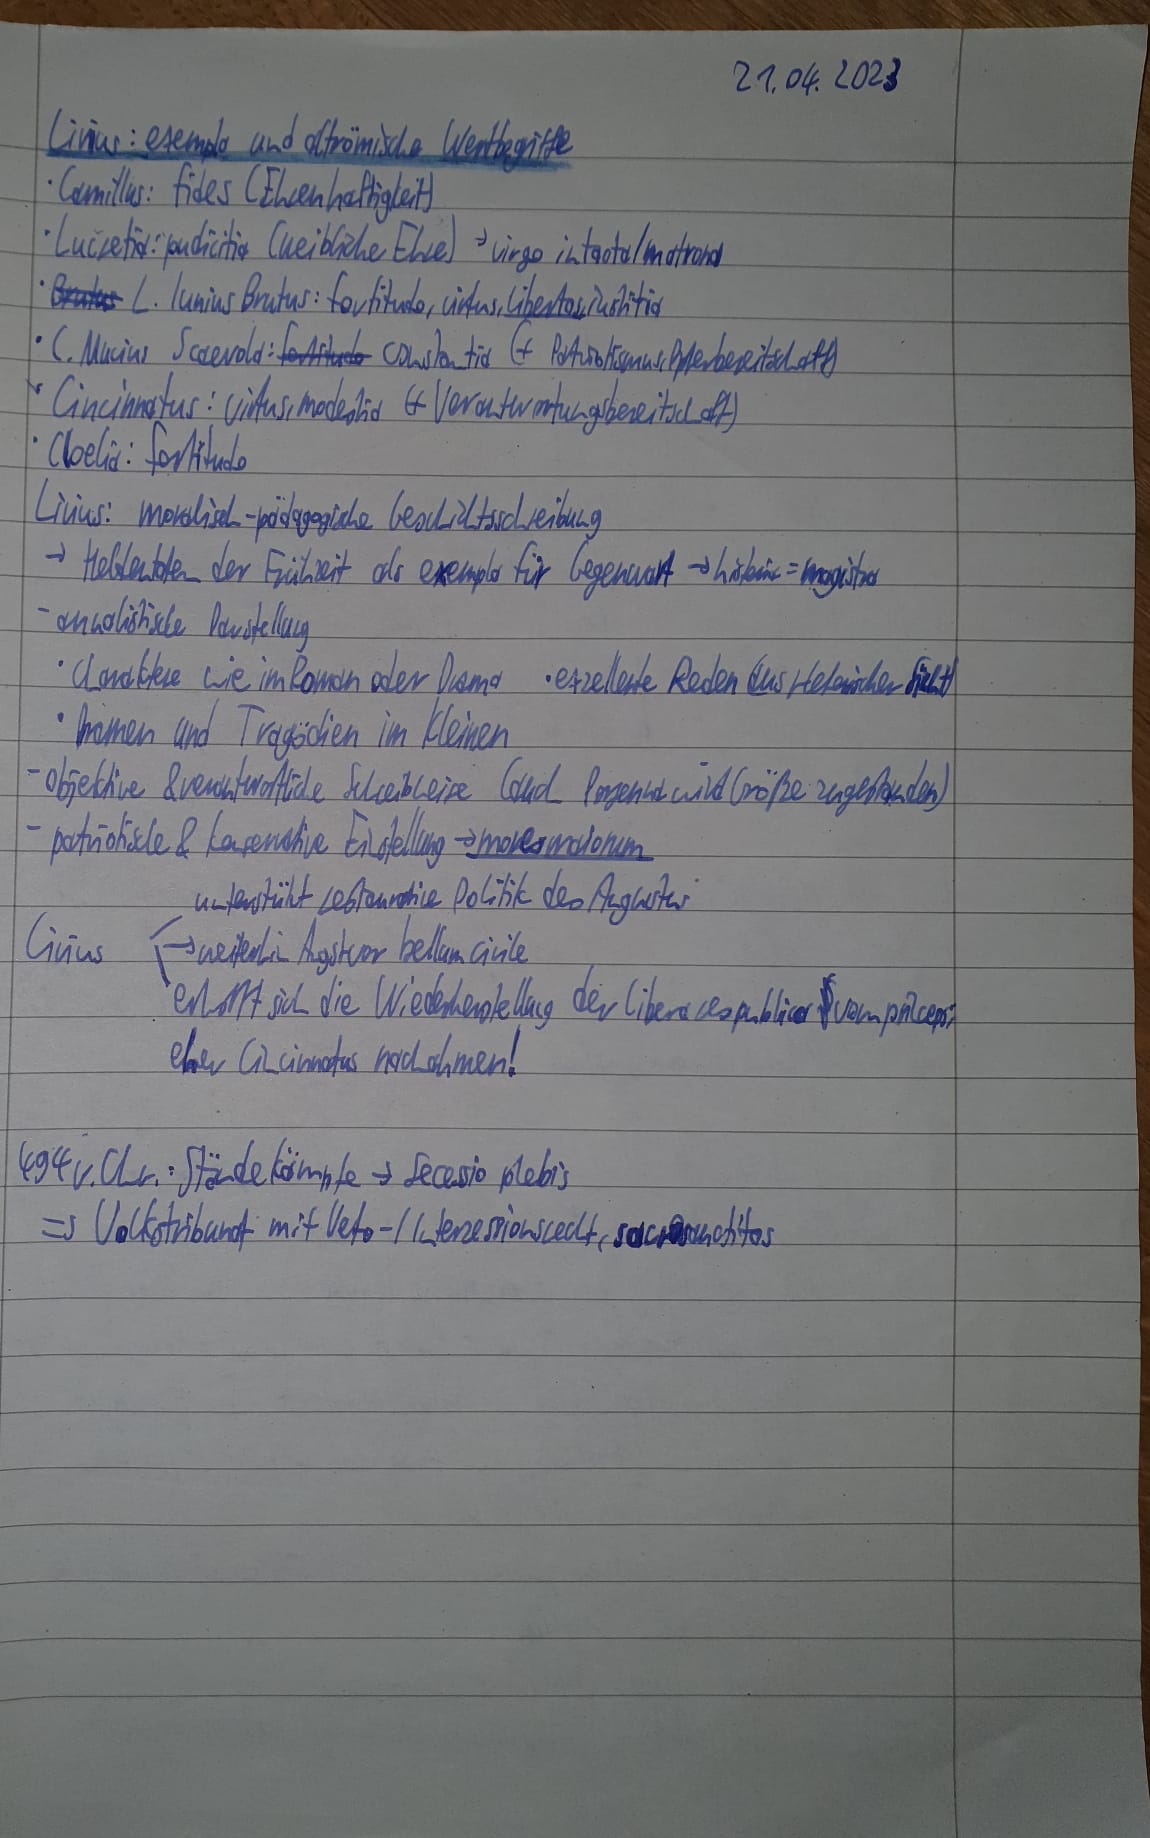 21.04.2023
Livius: exempla und altrömische Wertbegriffe
· Camillus: fides (Ehrenhaftigkeit)
· Lucretia: pudicitia (weibliche Ehre) → virgo intacta/matrona
· Brutus L. Iunius Brutus: fortitudo, virtus, libertas, iustitia
· C. Mucius Scaevola: fortitudo constantia (+ Patriotismus, Opferbereitschaft)
· Cincinnatus: virtus, modestia (+ Verantwortungsbereitschaft)
· Cloelia: fortitudo
Livius: moralisch-pädagogische Geschichtsschreibung
→ Heldentaten der Frühzeit als exempla für Gegenwart → historia = magistra
- annalistische Darstellung
· Charaktere wie im Roman oder Drama · exzellente Reden (aus rhetorischer Sicht)
· Dramen und Tragödien im Kleinen
- objektive & Schreibweise (auch Porsenna wird Größe zugestanden)
- patriotische & konservative Einstellung → mores maiorum
unterstützt restaurative Politik des Augustus
Livius → weiterhin Angst vor bellum civile
erhofft sich die Wiederherstellung der libera res publica vom princeps,
eher Cincinnatus nachahmen!
494 v. Chr.: Ständekämpfe → Secessio plebis
=> Volkstribunat mit Veto-/Interzessionsrecht, sacrosanctitas